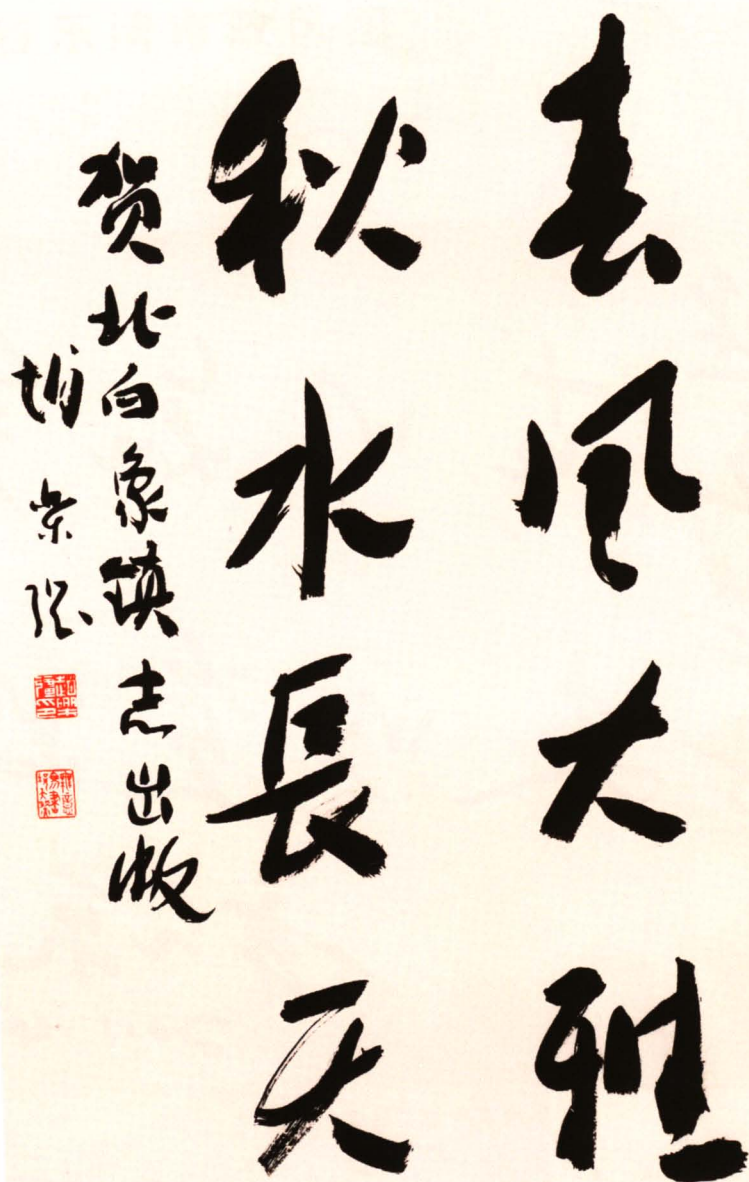 春风大雅
秋水長天
贺北白象镇志出版